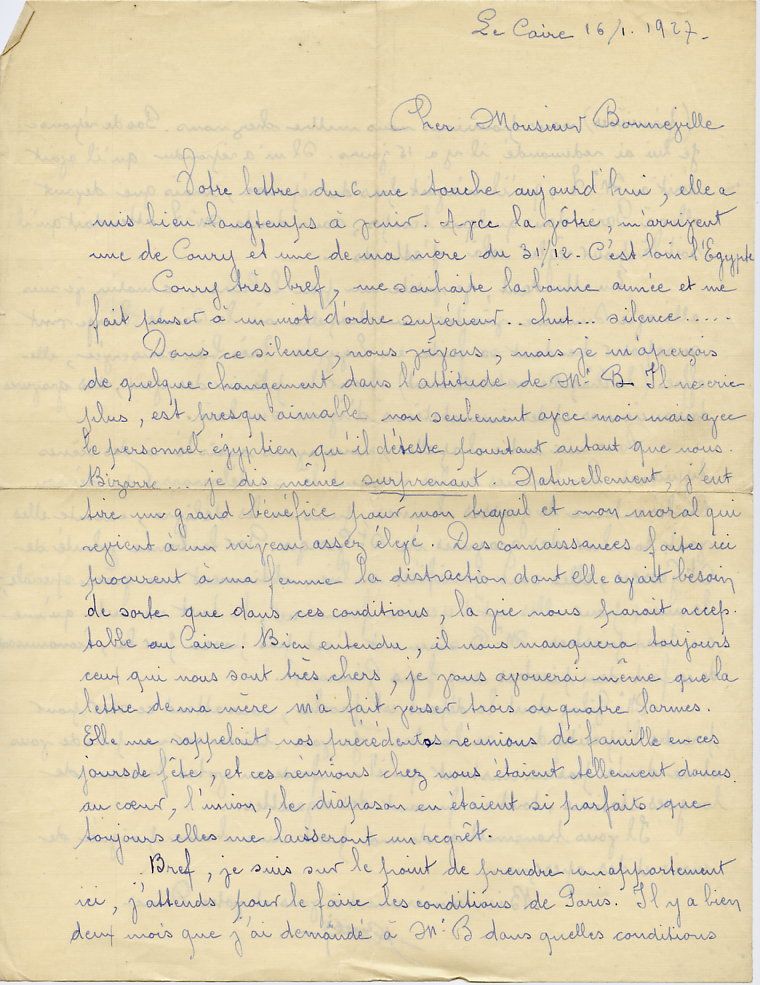 Le Caire 16/1. 1927.
Cher Monsieur Bonnejville
Votre lettre du 6 me touche aujourd'hui, elle a
mis bien longtemps à venir. Avec la vôtre, m'arrivent
une de Coury et une de ma mère du 31/12. C'est loin l'Egypte
Coury très bref, me souhaite la bonne année et me
fait penser à un mot d'ordre supérieur.. chut... silence.....
Dans ce silence, nous vivons, mais je m'aperçois
de quelque changement dans l'attitude de Mr B. Il ne crie
plus, est presqu'aimable non seulement avec moi mais avec
le personnel égyptien qu'il déteste pourtant autant que nous.
Bizarre.... je dis même surprenant. Naturellement, j'en
tire un grand bénéfice pour mon travail et mon moral qui
revient à un niveau assez élevé. Des connaissances faites ici
procurent à ma femme la distraction dont elle avait besoin
de sorte que dans ces conditions, la vie nous parait accep-
table au Caire. Bien entendu, il nous manquera toujours
ceux qui nous sont très chers, je vous avouerai même que la
lettre de ma mère m'a fait verser trois ou quatre larmes.
Elle me rappelait nos précédentes réunions de famille en ces
jours de fête, et ces réunions chez nous étaient tellement douces
au cœur, l'union, le diapason en étaient si parfaits que
toujours elles me laisseront un regrêt.
Bref, je suis sur le point de prendre un appartement
ici, j'attends pour le faire les conditions de Paris. Il y a bien
deux mois que j'ai demandé à Mr B dans quelles conditions